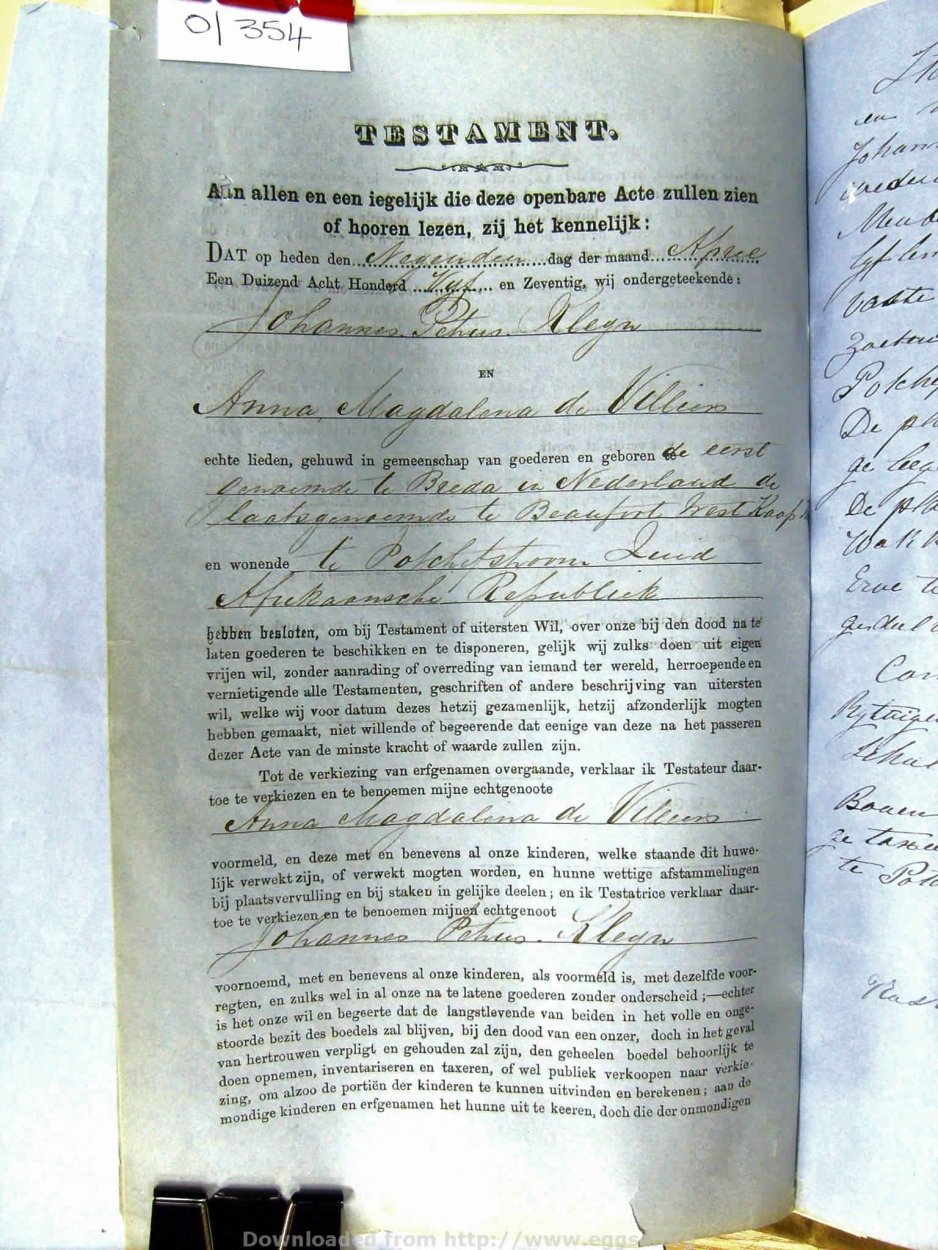 0/354
TESTAMENT.
Aan allen en een iegelijk die deze openbare Acte zullen zien
of hooren lezen, zij het kennelijk:
DAT op heden den Negenden dag der maand April
Een Duizend Acht Honderd Vyf en Zeventig, wij ondergeteekende:
Johannes Petrus Kleyn
EN
Anna Magdalena de Villiers
echte lieden, gehuwd in gemeenschap van goederen en geboren de eerst
genoemde te Breda in Nederland de
laatsgenoemde te Beaufort West Kaap
en wonende te Potchefstroom Zuid
Afrikaansche Republiek
hebben besloten, om bij Testament of uitersten Wil, over onze bij den dood na te
laten goederen te beschikken en te disponeren, gelijk wij zulks doen uit eigen
vrijen wil, zonder aanrading of overreding van iemand ter wereld, herroepende en
vernietigende alle Testamenten, geschriften of andere beschrijving van uitersten
wil, welke wij voor datum dezes hetzij gezamenlijk, hetzij afzonderlijk mogten
hebben gemaakt, niet willende of begeerende dat eenige van deze na het passeren
dezer Acte van de minste kracht of waarde zullen zijn.
Tot de verkiezing van erfgenamen overgaande, verklaar ik Testateur daar-
toe te verkiezen en te benoemen mijne echtgenoote
Anna Magdalena de Villiers
voormeld, en deze met en benevens al onze kinderen, welke staande dit huwe-
lijk verwekt zijn, of verwekt mogten worden, en hunne wettige afstammelingen
bij plaatsvervulling en bij staken in gelijke deelen; en ik Testatrice verklaar daar-
toe te verkiezen en te benoemen mijnen echtgenoot
Johannes Petrus Kleyn
voornoemd, met en benevens al onze kinderen, als voormeld is, met dezelfde voor-
regten, en zulks wel in al onze na te latene goederen zonder onderscheid;—echter
is het onze wil en begeerte dat de langstlevende van beiden in het volle en onge-
stoorde bezit des boedels zal blijven, bij den dood van een onzer, doch in het geval
van hertrouwen verpligt en gehouden zal zijn, den geheelen boedel behoorlijk te
doen opnemen, inventariseren en taxeren, of wel publiek verkoopen naar verkie-
zing, om alzoo de portiën der kinderen te kunnen uitvinden en berekenen; aan de
mondige kinderen en erfgenamen het hunne uit te keeren, doch die der onmondigen
en
Johann
vaste
De
De
Erve te
Downloaded from http://www.eggs